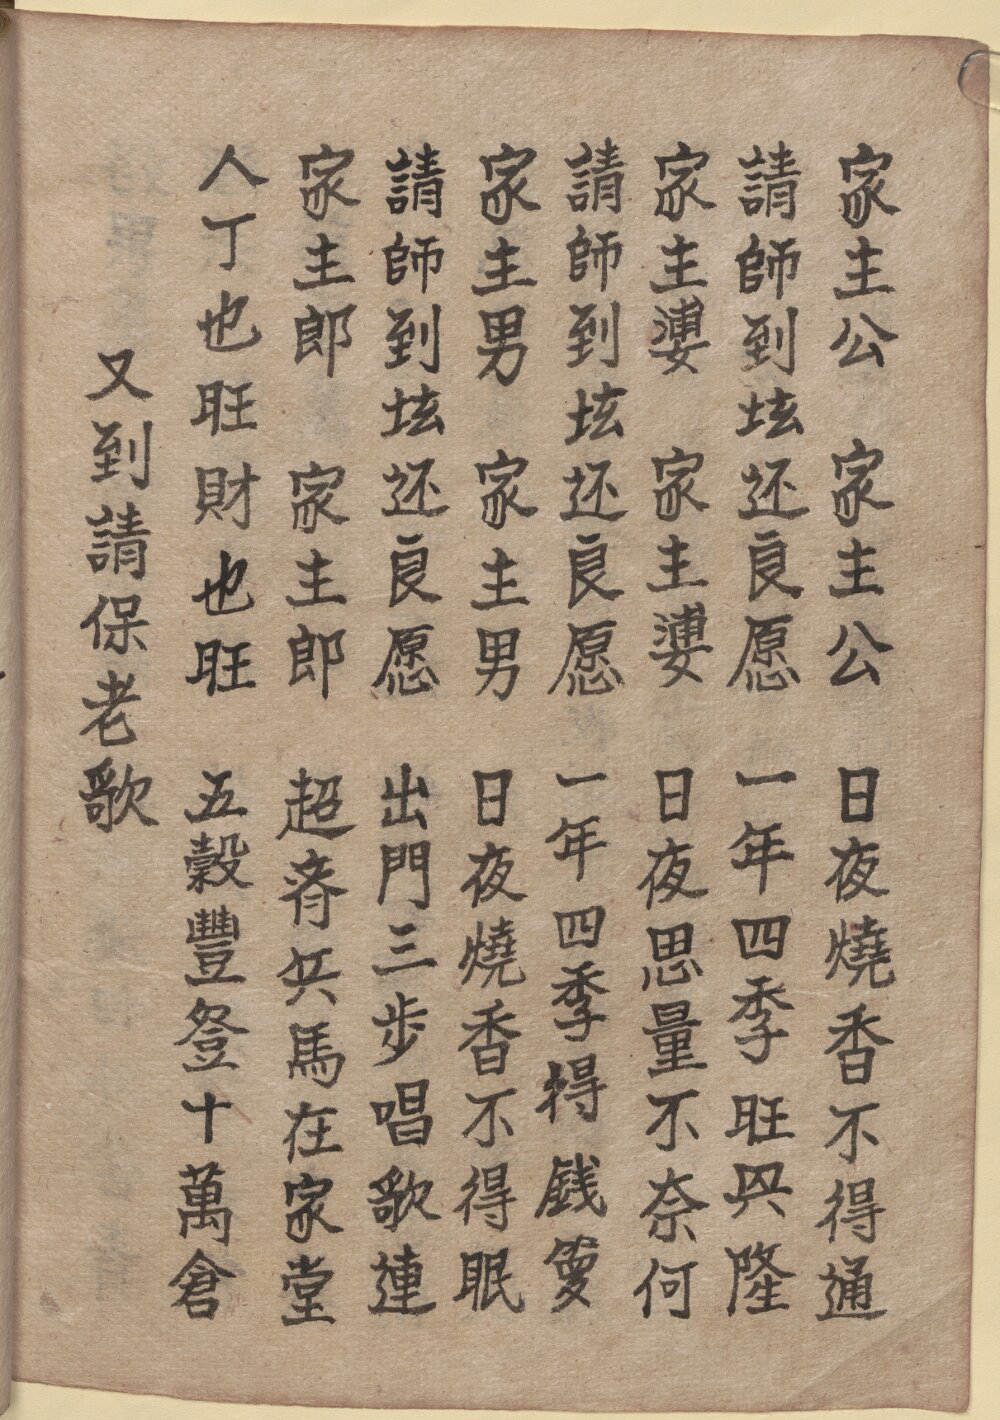 家主公 家主公 日夜燒香不得通
請師到坛还良愿 一年四季旺兴隆
家主婆 家主婆 日夜思量不奈何
請師到坛还良愿 一年四季得銭
家主男 家主男 日夜燒香不得眠
請師到坛还良愿 出門三步唱歌連
家主郎 家主郎 超兵馬在家堂
人丁也旺財也旺 五穀豐登十萬倉
又到請保老歌